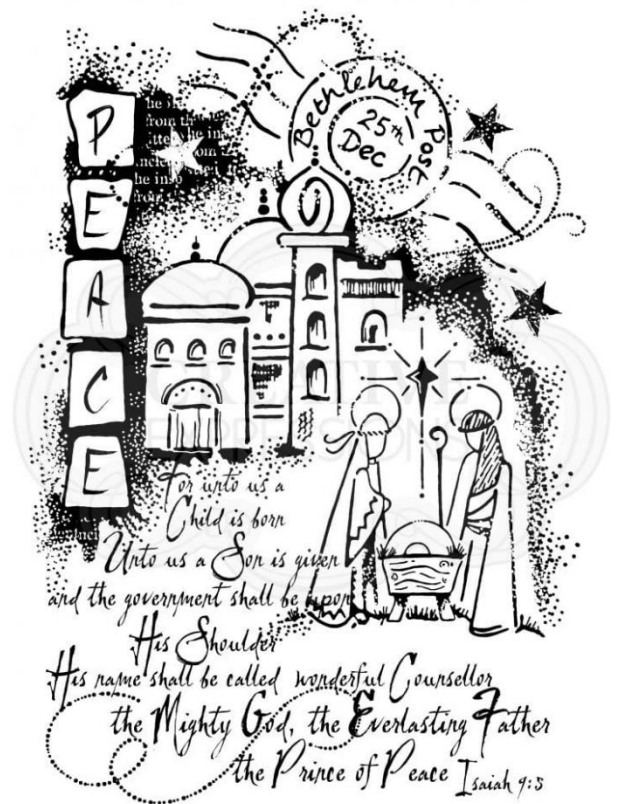 P
E
A
C
E
Bethlehem Post
25th
Dec
For unto us a
Child is born
Unto us a Son is given
and the government shall be upon
His Shoulder
His name shall be called wonderful Counsellor
the Mighty God, the Everlasting Father
the Prince of Peace Isaiah 9:5
CREATIVE
EXPRESSIONS